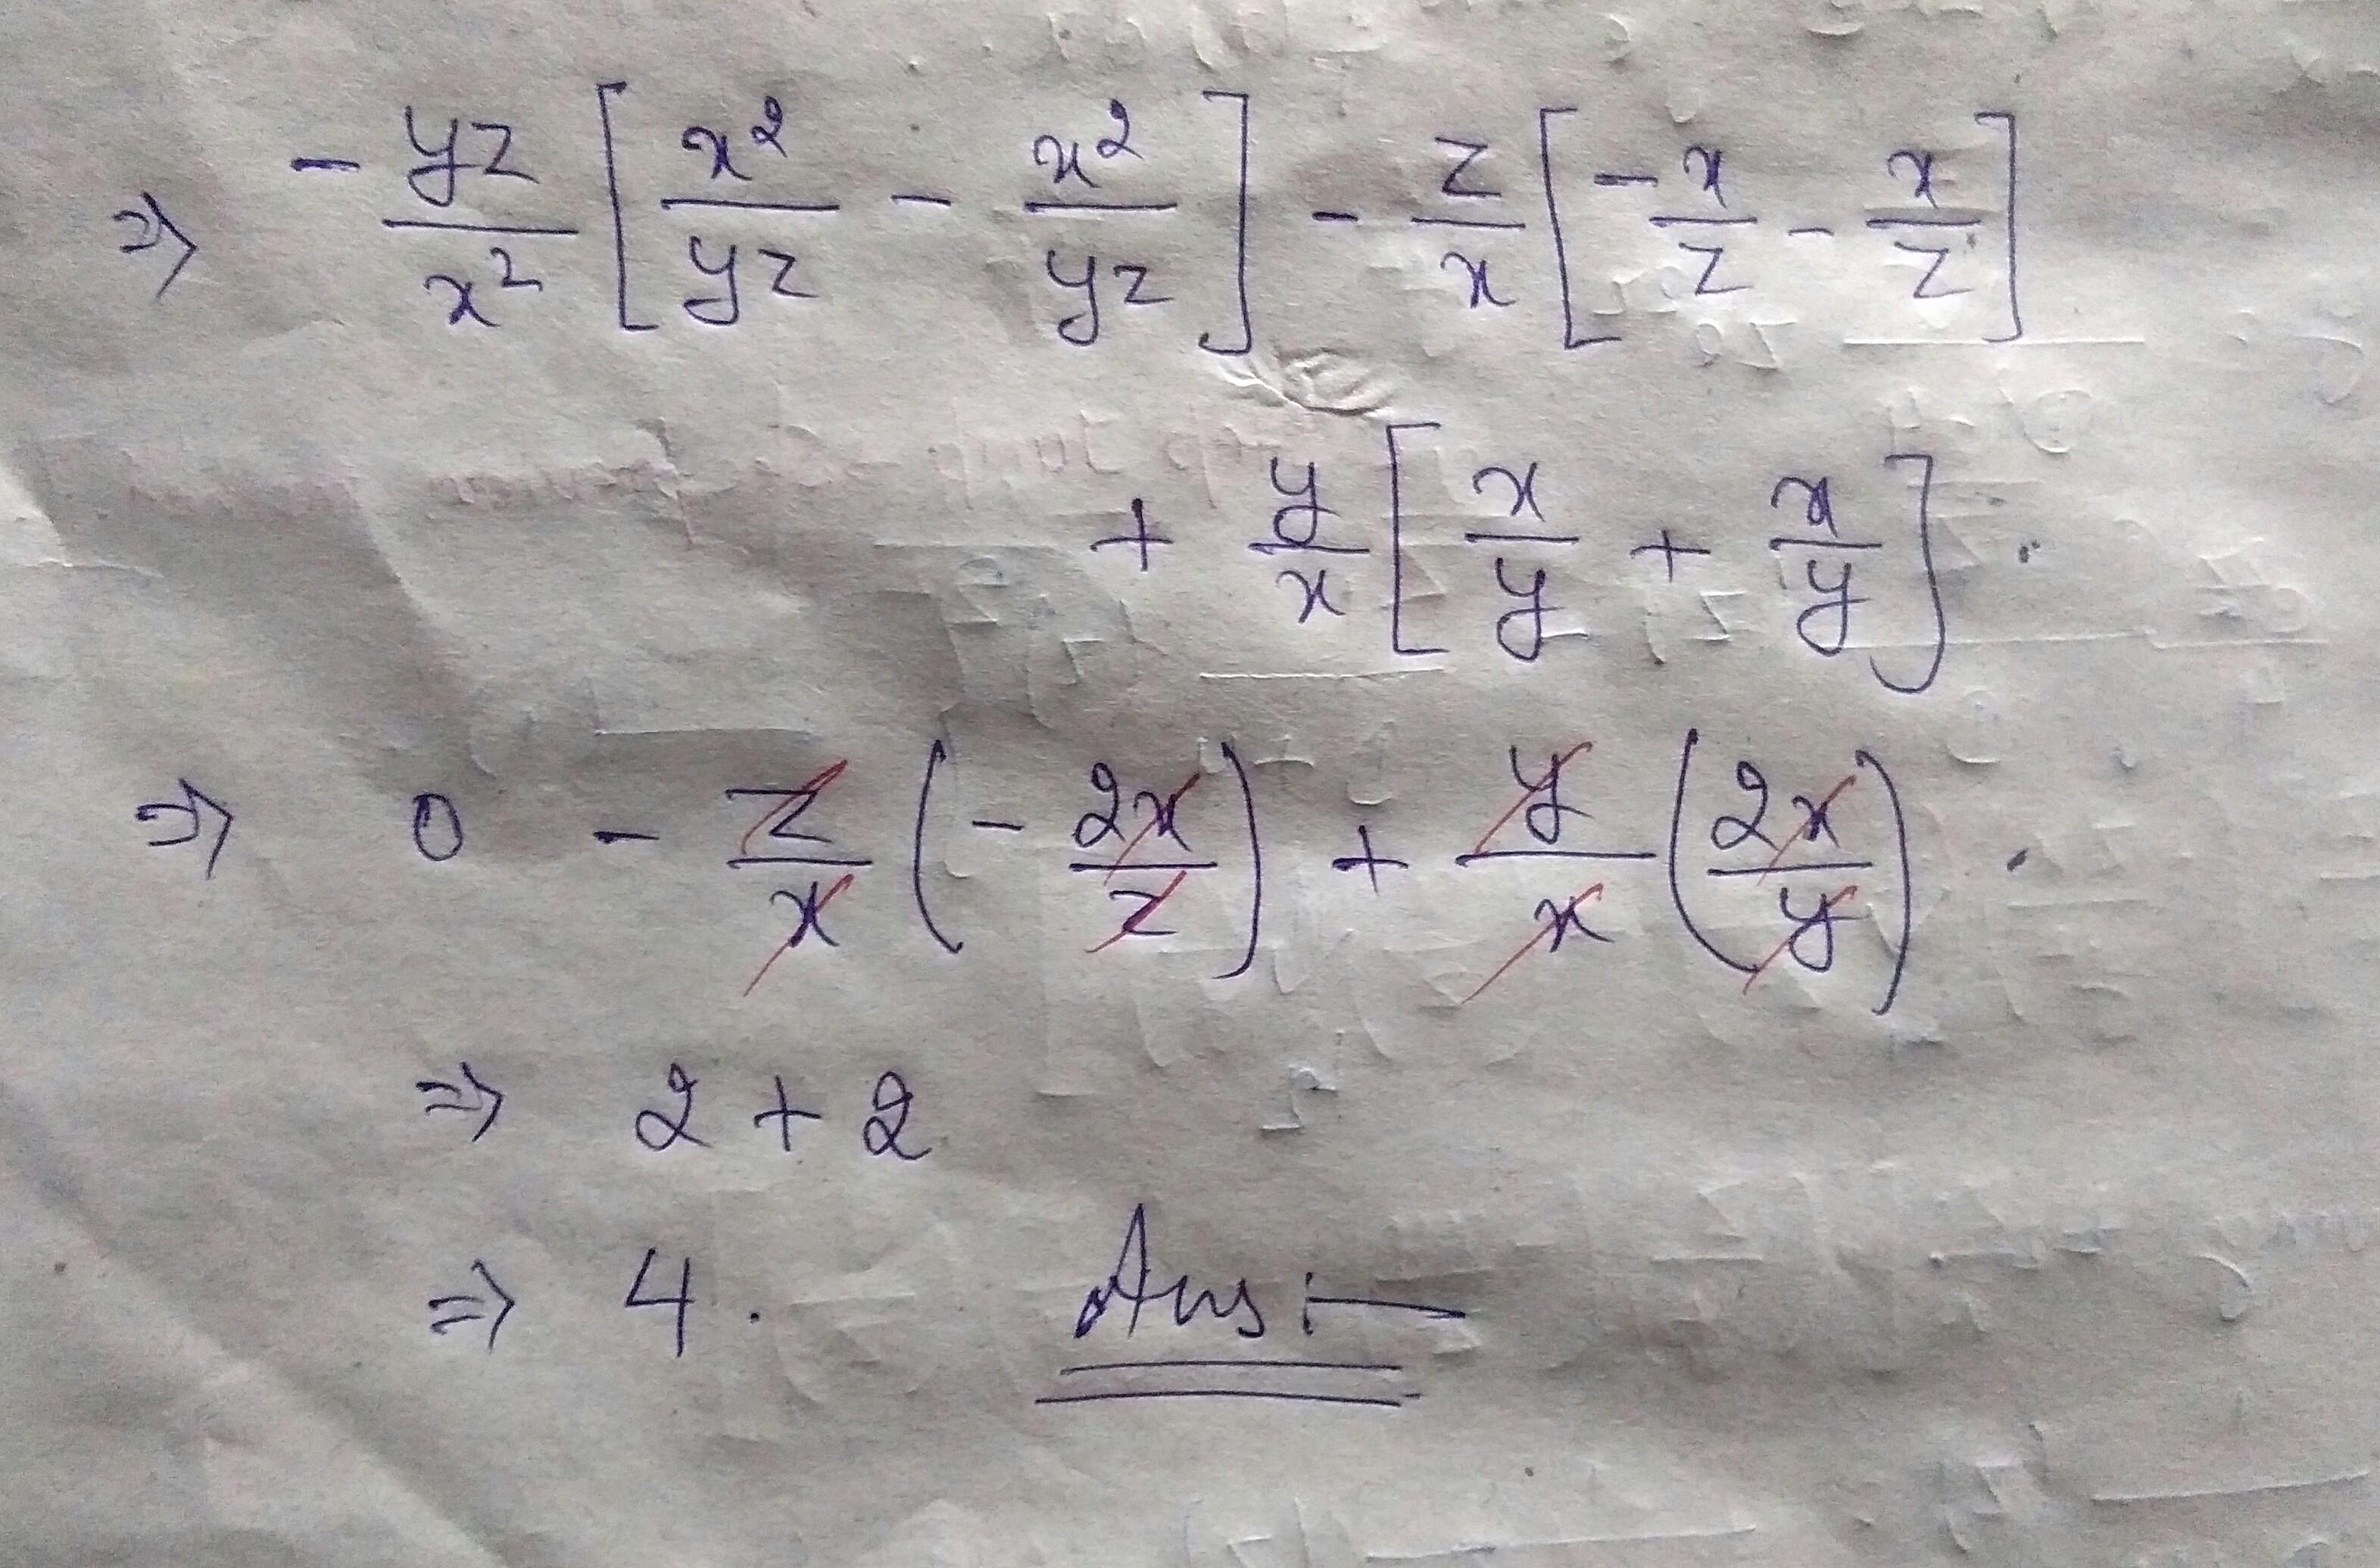 ⇒ - yz/x² [ x²/yz - x²/yz ] - z/x [ -x/z - x/z ]
+ y/x [ x/y + x/y ] .
⇒ 0 - z/x ( - 2x/z ) + y/x ( 2x/y ) .
⇒ 2 + 2
⇒ 4 . Ans :-